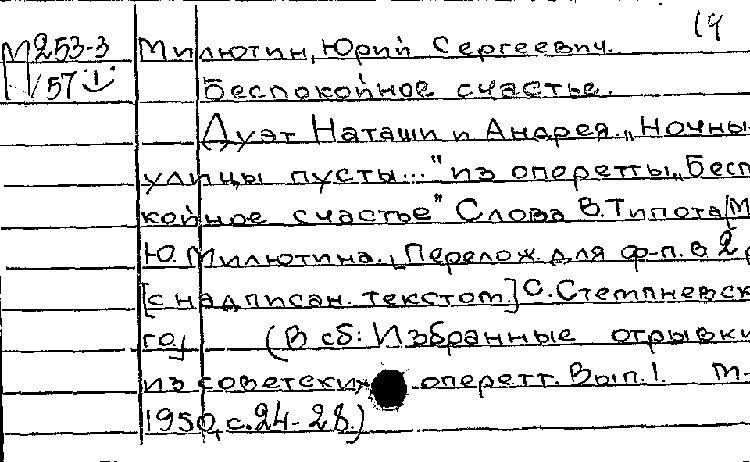 19
М253-3 Милютин, Юрий Сергеевич.
1/57 Беспокойное счастье.
Дуэт Наташи и Андрея „Ночны
улицы пусты..." из оперетты „Бесп
койное счастье" Слова В. Типота [М
Ю. Милютина. [Перелож. для ф-п. в 2 р
[с надписан. текстом.] С. Стемпневск
го] (В сб: Избранные отрывки
из советских оперетт. Вып. 1. М.-
1950, с. 24-28.)